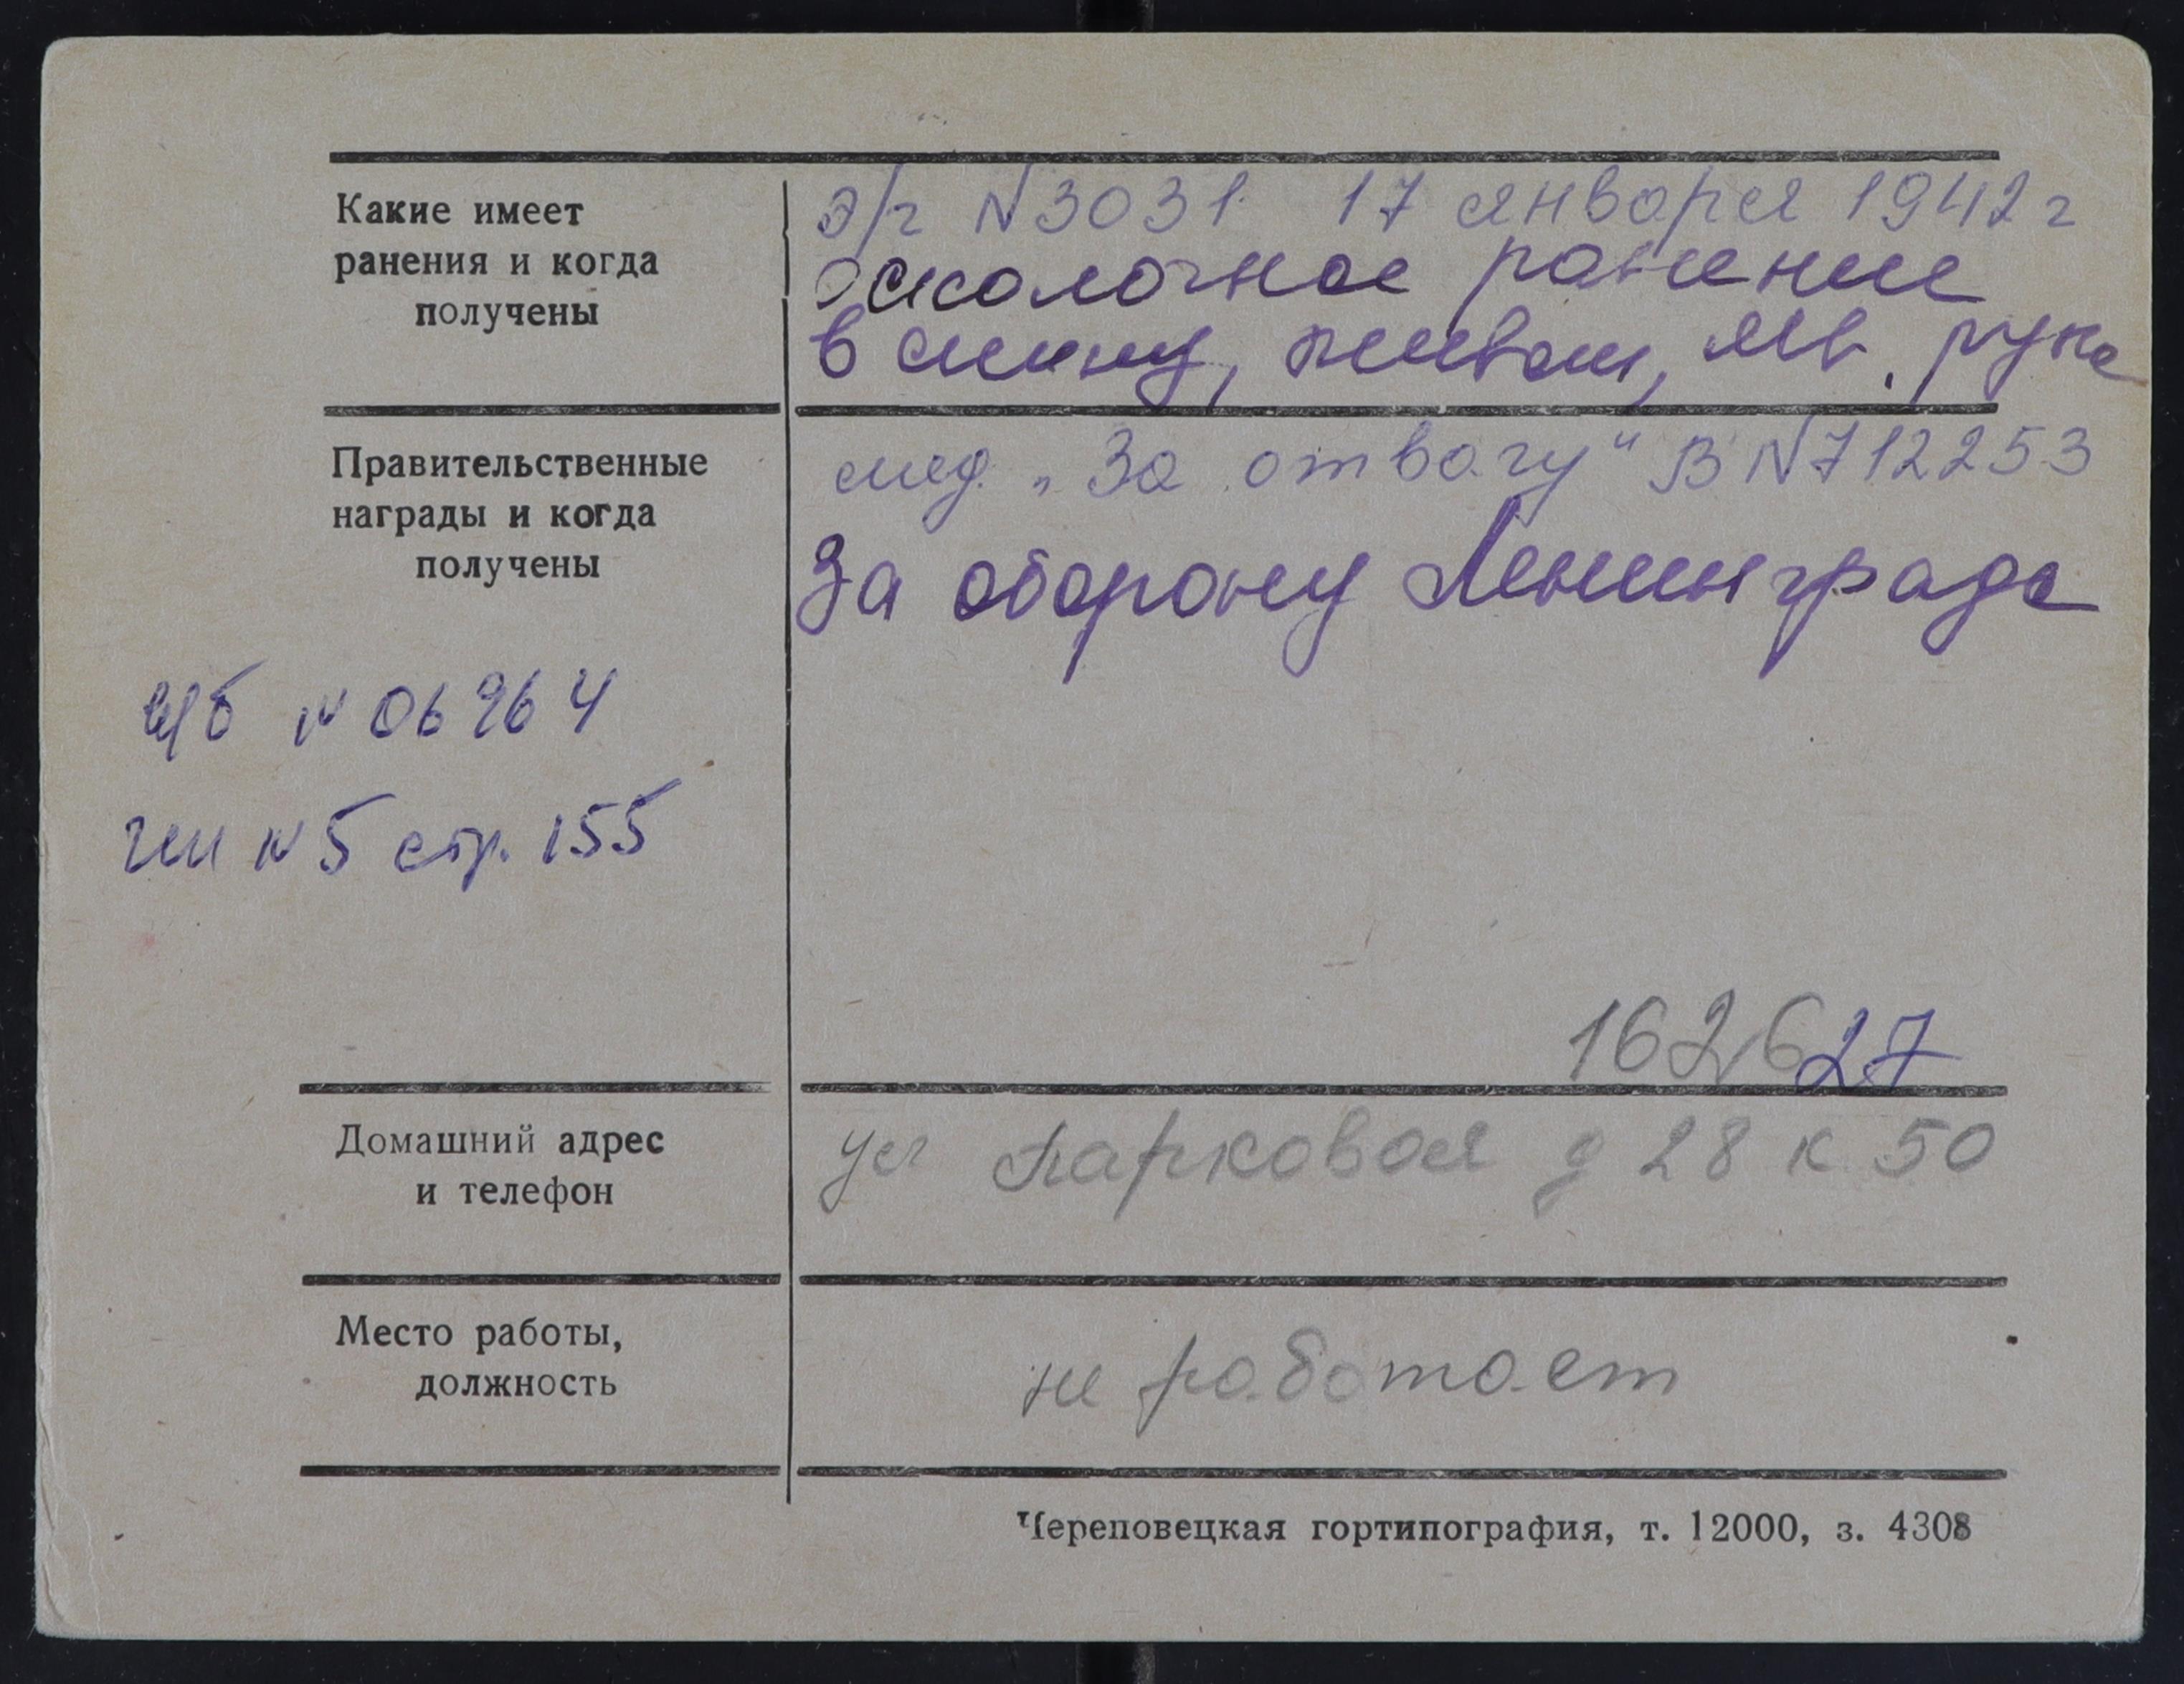 Какие имеет
ранения и когда
получены
э/г N 3031 17 января 1942 г
осколочное ранение
в спину, живот, лев. рука
Правительственные
награды и когда
получены
мед. „За отвагу" В N 712253
За оборону Ленинграда
N 06964
N 5 стр. 155
162627
Домашний адрес
и телефон
ул Парковая д 28 к 50
Место работы,
должность
не работает
Череповецкая гортипография, т. 12000, з. 4308